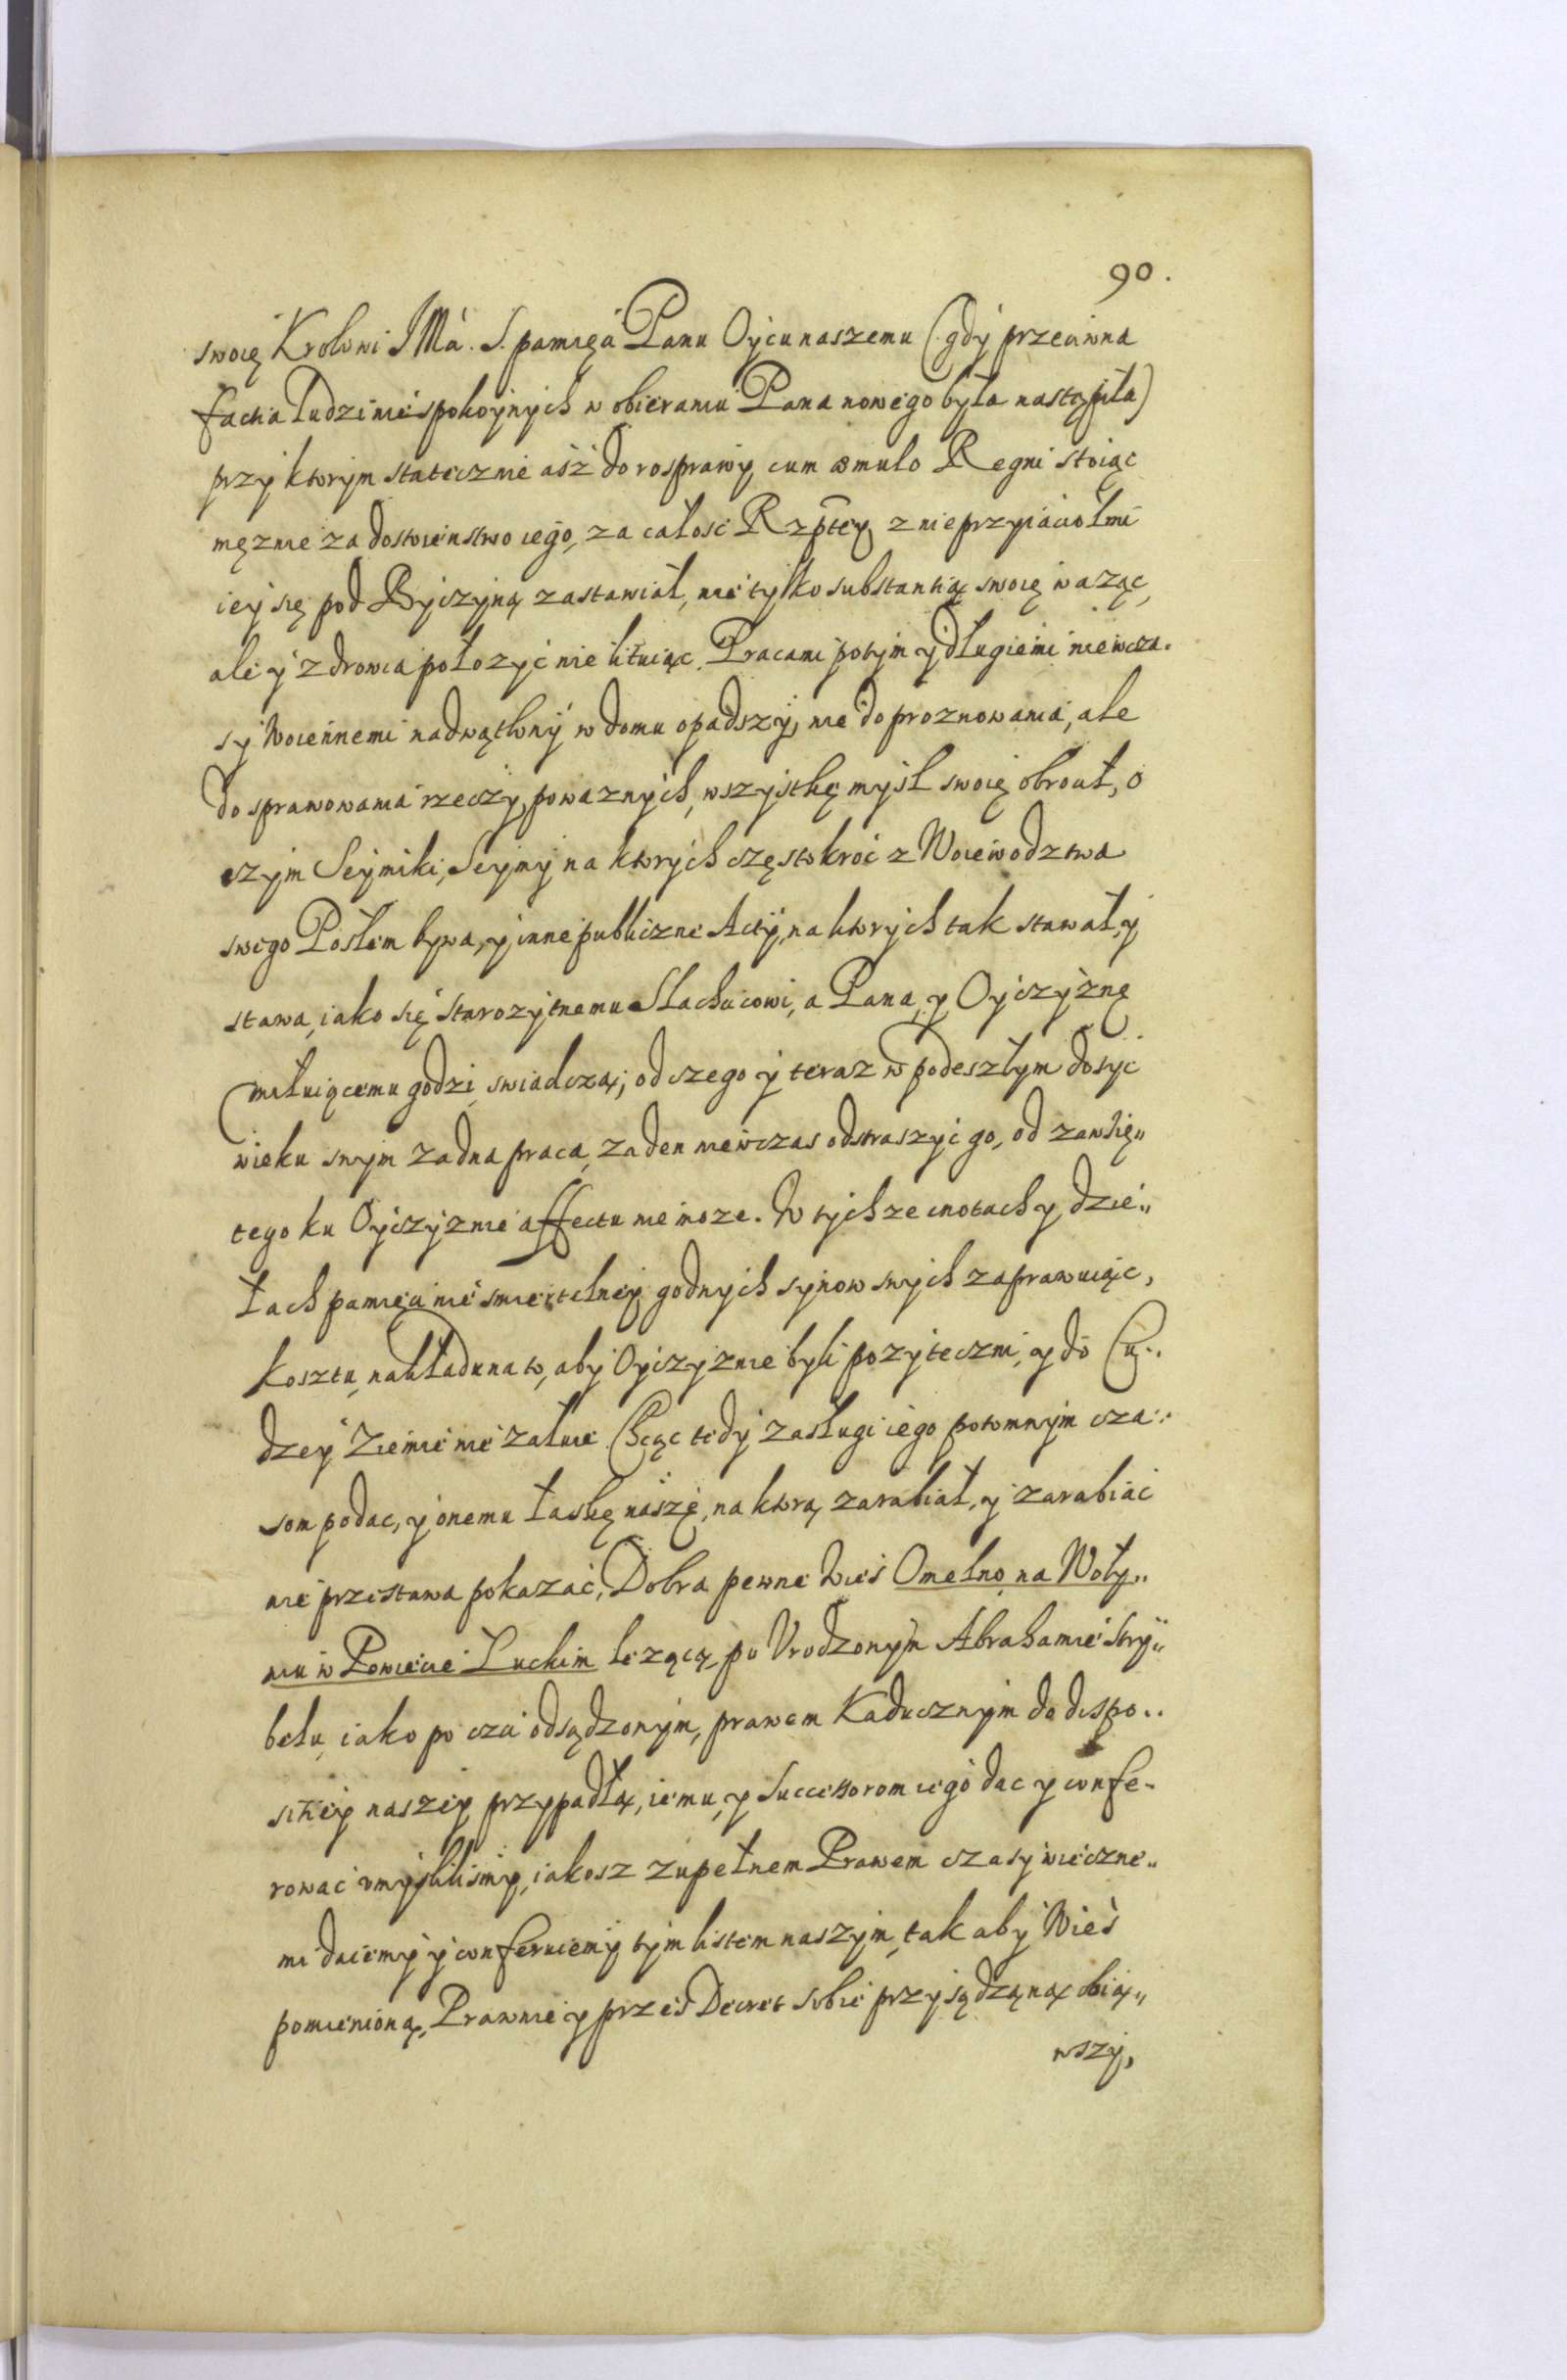 90.
swoię Krolowi JMći. S. pamięci Panu Oycu naszemu (gdy przeciwna
factia ludzi niespokoynych w obieraniu Pana nowego była nastąpiła)
przy ktorym statecznie aśź do rosprawy cum æmulo Regni stoiąc
męznie za dostoienstwo iego, za całosc Rzptey z nieprzyiaciołmi
iey się pod Byczyną zastawiał, nie tylko substantią swoię wazac,
ale y zdrowia połozyć nie lituiąc. Pracami potym y długiemi niewcza.
sy Woiennemi nadwątlony w domu opadszy, nie do proznowania, ale
do sprawowania rzeczy powaznych, wszystkę mysl swoię obrocił, o
czym Seymiki, Seymy na ktorych częstokroć z Woiewodztwa
swego Posłem bywa, y inne publiczne Acty, na ktorych tak stawał, y
stawa, iako się starozytnemu Slachcicowi, a Pana, y Oyczyznę
miłuiącemu godzi, swiadczą; od czego y teraz w podeszłym dosyc
wieku swym zadna praca, zaden niewczas odstraszyć go, od zawzię„
tego ku Oyczyznie affectu nie moze. W tychze cnotach y dzie„
łach pamięci niesmiertelney godnych synow swych zaprawuiąc,
kosztu, nakładu na to, aby Oyczyznie byli pozyteczni, y do Cu„
dzey Ziemie nie załuie. Chcąc tedy zasługi iego potomnym cza„
som podac, y onemu łaskę naszę, na ktorą zarabiał, y zarabiać
nie przestawa pokazać, Dobra pewne Wieś Omelno na Woły„
niu w Powiecie Luckim lezącą, po Vrodzonym Abrahamie Stry„
belu, iako po czci odsądzonym, prawem Kaducznym do dispo„
sitiey naszey przypadłą, iemu, y Successorom iego dac y confe-
rowac vmyslilismy, iakosz zupełnem Prawem czasy wieczne„
mi daiemy y conferuiemy tym listem naszym, tak aby Wieś
pomienioną, Prawnie y przes Decret sobie przysądzoną obią„
wszy,